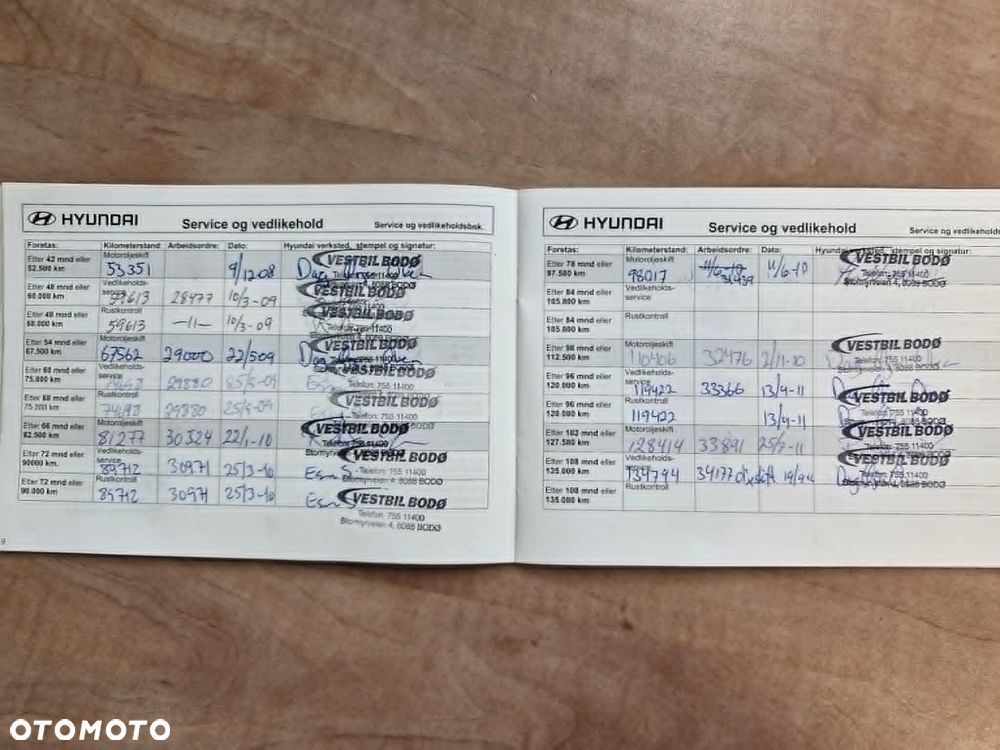 HYUNDAI Service og vedlikehold Service og vedlikeholdsbok.
Foretas: Kilometerstand: Arbeidsordre: Dato: Hyundai verksted, stempel og signatur:
Etter 42 mnd eller 52.500 km Motoroljeskift 53351 9/12 08 VESTBIL BODØ
Etter 48 mnd eller 60.000 km Vedlikeholds-service 59613 28477 10/3-09 VESTBIL BODØ
Etter 48 mnd eller 60.000 km Rustkontroll 59613 —11— 10/3-09 VESTBIL BODØ
Etter 54 mnd eller 67.500 km Motoroljeskift 67562 29000 22/509 VESTBIL BODØ
Etter 60 mnd eller 75.000 km Vedlikeholds-service 29880 25/9-09 VESTBIL BODØ
Etter 60 mnd eller Rustkontroll 29880 25/9-09 VESTBIL BODØ
Telefon: 755 11400
Etter 66 mnd eller 82.500 km Motoroljeskift 81277 30324 22/1-10 VESTBIL BODØ
Etter 72 mnd eller 90000. km Vedlikeholds-service 89712 30971 25/3-10 VESTBIL BODØ
Telefon: 755 11400
Stormyrveien 4, 8088 BODØ
Etter 72 mnd eller 90.000 km Rustkontroll 89712 30971 25/3-10 VESTBIL BODØ
Telefon: 755 11400
Stormyrveien 4, 8088 BODØ
9
HYUNDAI Service og vedlikehold Service og vedlikeholds
Foretas: Kilometerstand: Arbeidsordre: Dato: Hyundai verksted, stempel og signatur:
Etter 78 mnd eller 97.500 km Motoroljeskift 98017 11/6-10 VESTBIL BODØ
Telefon: 755 11400
Stormyrveien 4, 8088 BODØ
Etter 84 mnd eller 105.000 km Vedlikeholds-service
Etter 84 mnd eller 105.000 km Rustkontroll
Etter 90 mnd eller 112.500 km Motoroljeskift 110406 32476 2/11-10 VESTBIL BODØ
Telefon: 755 11400
Etter 96 mnd eller 120.000 km Vedlikeholds-service 119422 33366 13/4-11 VESTBIL BODØ
Etter 96 mnd eller 120.000 km Rustkontroll 119422 13/4-11 VESTBIL BODØ
Etter 102 mnd eller 127.500 km Motoroljeskift 128414 33891 VESTBIL BODØ
Etter 108 mnd eller 135.000 km Vedlikeholds-service 134794 34177 VESTBIL BODØ
Telefon: 755 11400
Stormyrveien 4, 8088 BODØ
Etter 108 mnd eller 135.000 km Rustkontroll
OTOMOTO